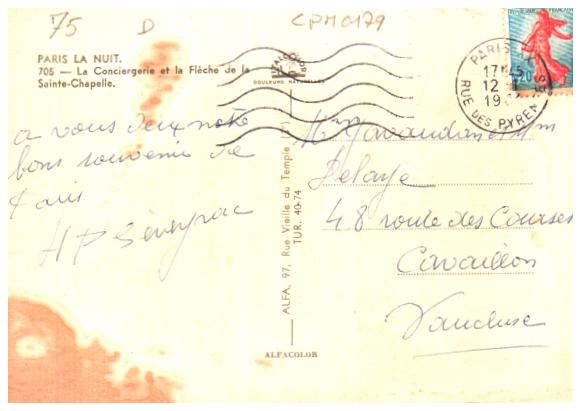 75 D CPM0179
PARIS LA NUIT.
705 — La Conciergerie et la Flèche de la
Sainte-Chapelle.
ALFACOLOR
COULEURS NATURELLES
PARIS
17H45
12
19
RUE DES PYRENEES
0,20
a vous deux notre
bons souvenir de
Paris
HP Séveyrac
ALFA, 97, Rue Vieille du Temple
TUR. 40-74
ALFACOLOR
Delaye
48 route des Courses
Cavaillon
Vaucluse